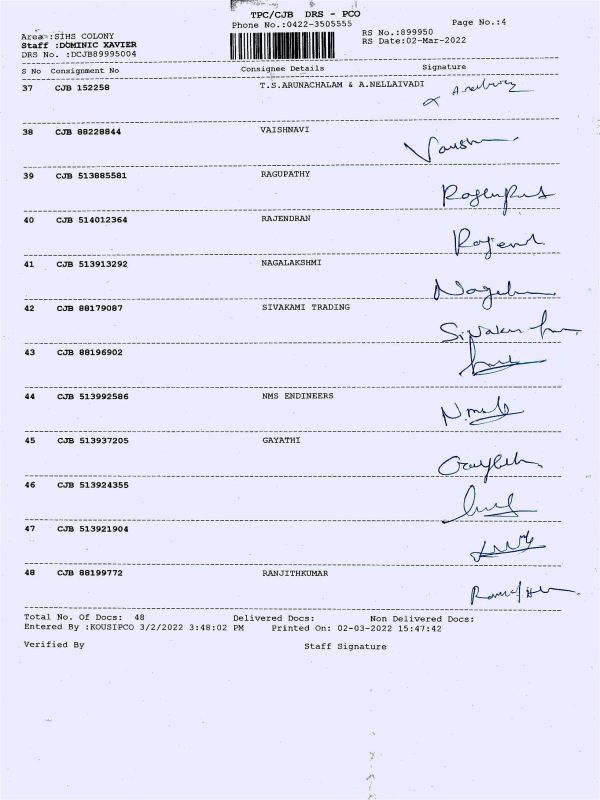 TPC/CJB DRS - PCO
Phone No.:0422-3505555
Page No.:4
Area :SIHS COLONY
RS No.:899950
Staff :DOMINIC XAVIER
RS Date:02-Mar-2022
DRS No. :DCJB89995004
S No Consignment No Consignee Details Signature
37 CJB 152258 T.S.ARUNACHALAM & A.NELLAIVADI
38 CJB 88228844 VAISHNAVI
39 CJB 513885581 RAGUPATHY
40 CJB 514012364 RAJENDRAN
41 CJB 513913292 NAGALAKSHMI
42 CJB 88179087 SIVAKAMI TRADING
43 CJB 88196902
44 CJB 513992586 NMS ENDINEERS
45 CJB 513937205 GAYATHI
46 CJB 513924355
47 CJB 513921904
48 CJB 88199772 RANJITHKUMAR
Total No. Of Docs: 48 Delivered Docs: Non Delivered Docs:
Entered By :KOUSIPCO 3/2/2022 3:48:02 PM Printed On: 02-03-2022 15:47:42
Verified By Staff Signature